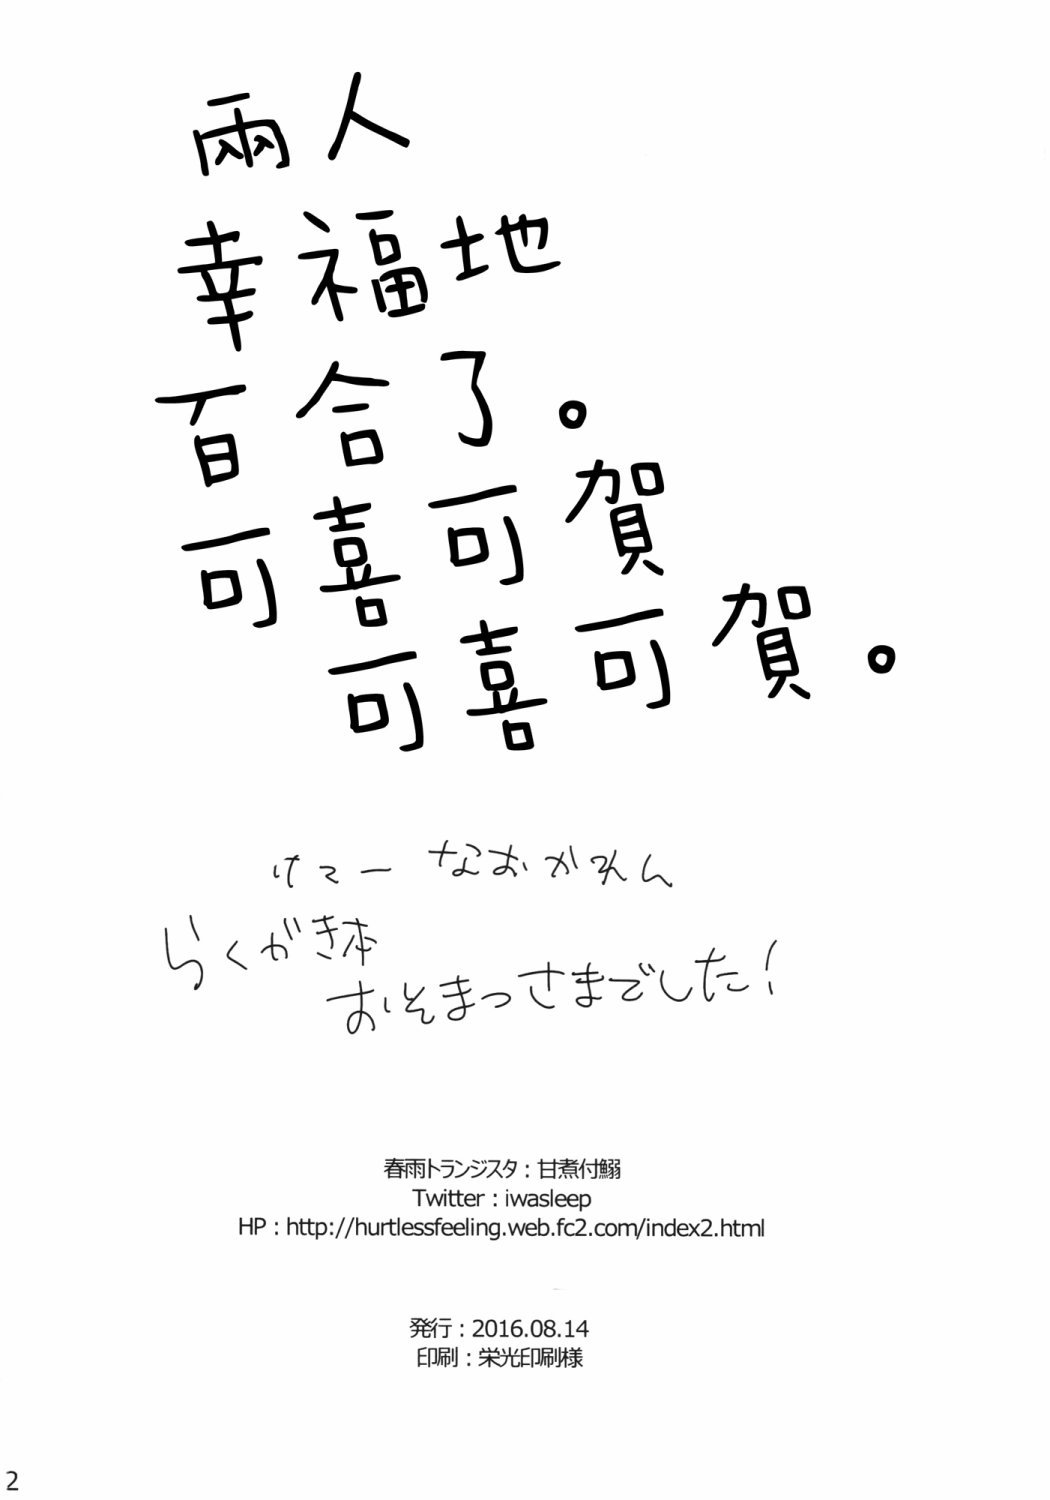 兩人
幸福地
百合了。
可喜可賀
可喜可賀。
けてー なおかれん
らくがき本
おそまつさまでした!
春雨トランジスタ:甘煮付鰯
Twitter:iwasleep
HP:http://hurtlessfeeling.web.fc2.com/index2.html
発行:2016.08.14
印刷:栄光印刷様
2